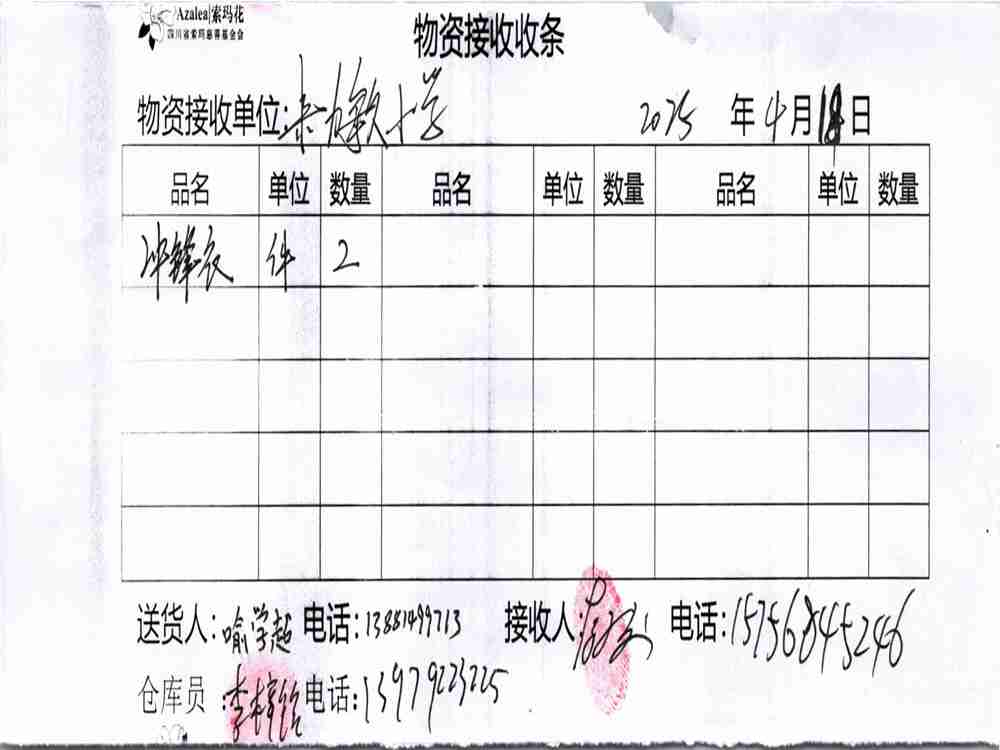 Azalea|索玛花
四川省索玛慈善基金会
物资接收收条
物资接收单位: 小学 2025 年 4 月 18 日
品名 单位 数量 品名 单位 数量 品名 单位 数量
冲锋衣 件 2
送货人: 喻学超 电话: 13881499713 接收人: 电话: 15756845246
仓库员: 李梓铭 电话: 13979223225